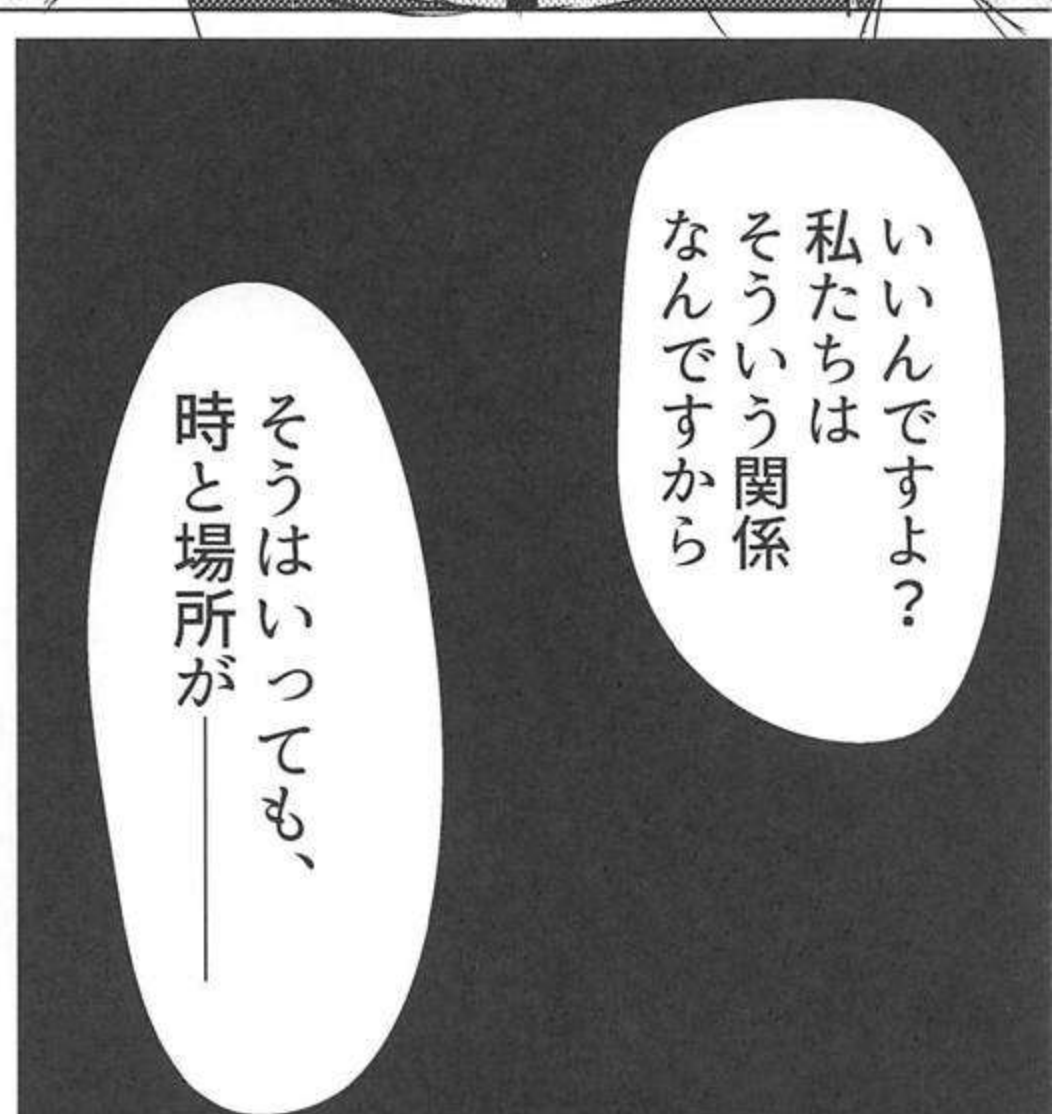 いいんですよ？
私たちは
そういう関係
なんですから
そうはいっても、
時と場所が――